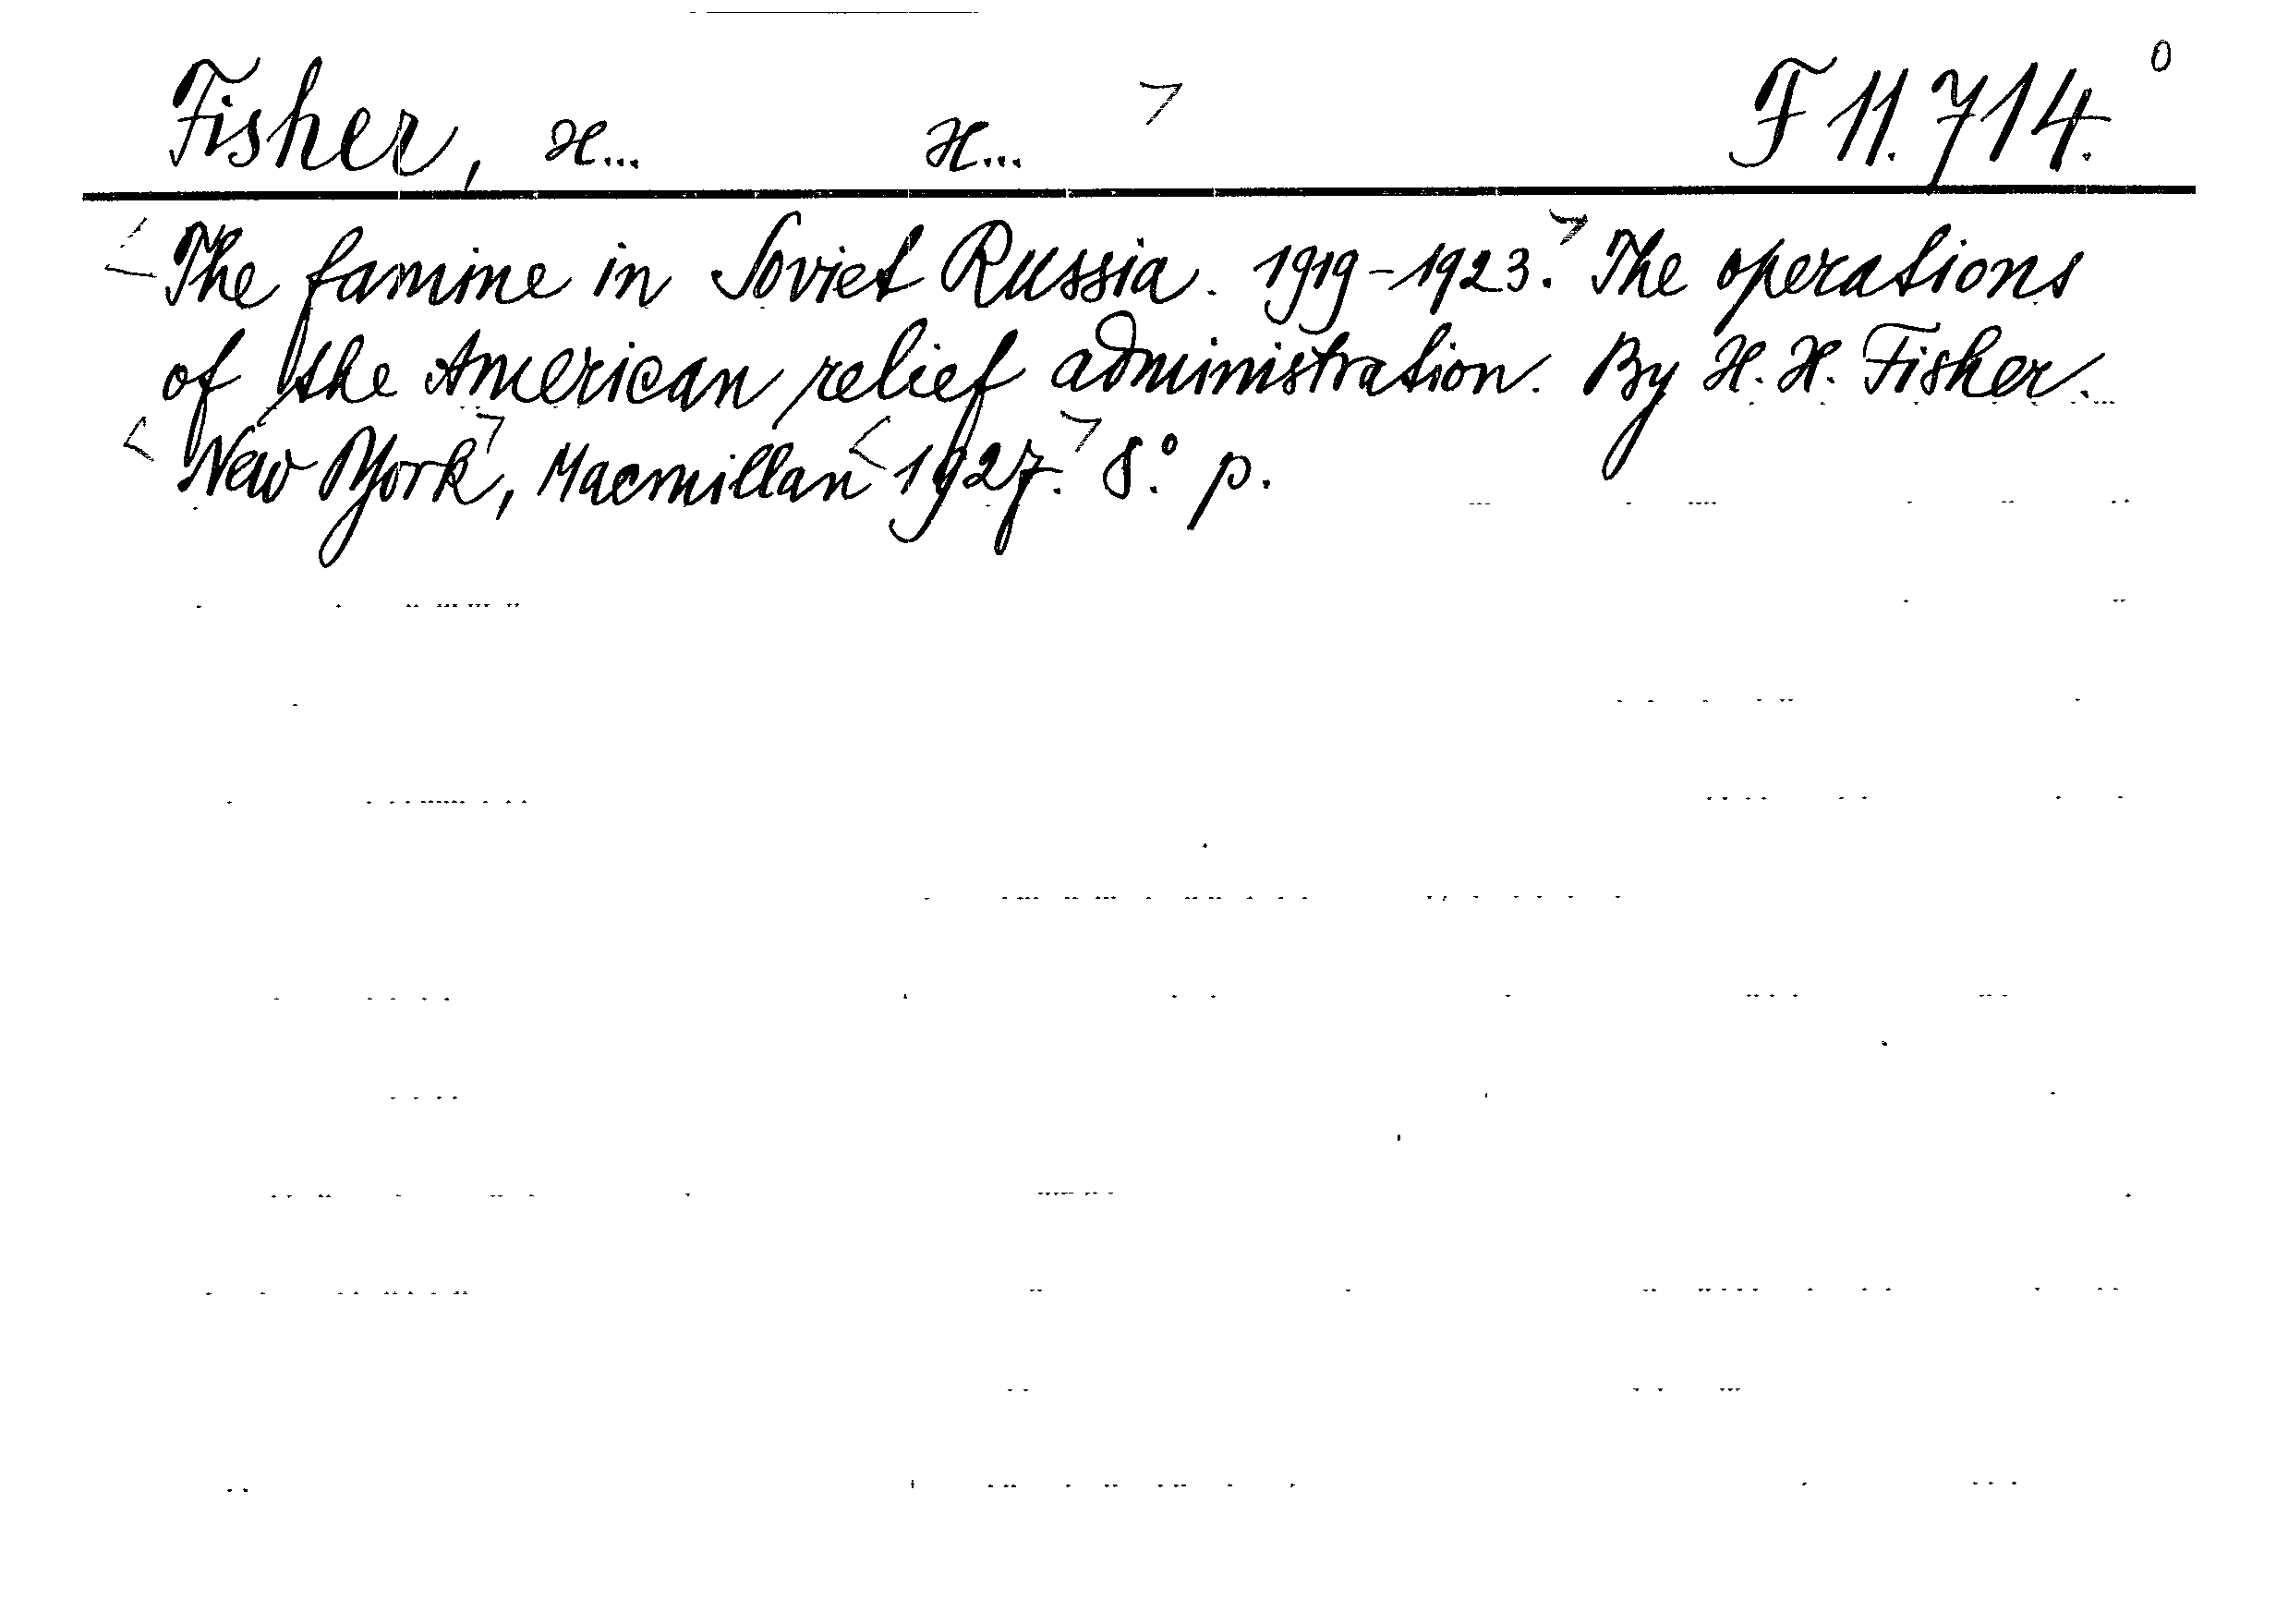 Fisher, H... H... F 11.714. 0
The famine in Soviet Russia. 1919-1923. The operations
of the American relief administration. By H. H. Fisher.
New York, Macmillan 1927. 8.° p.